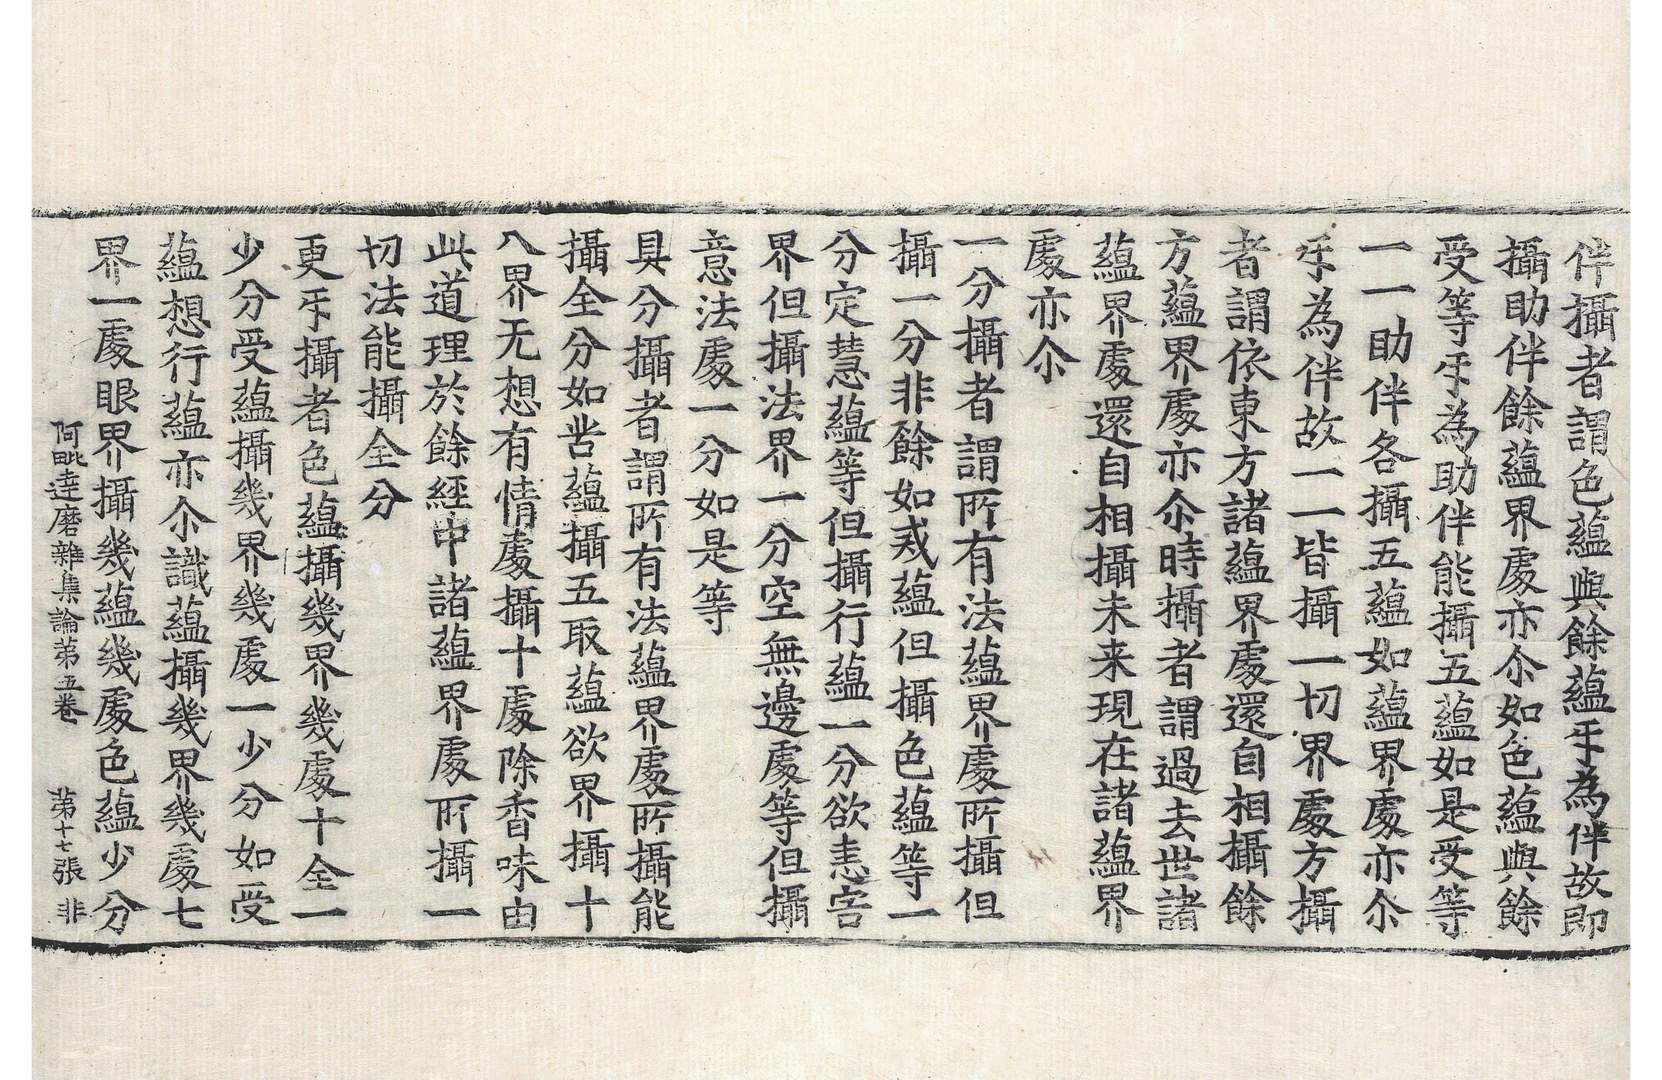 伴攝者謂色蘊與餘蘊㸦為伴故即
攝助伴餘蘊界處亦尒如色蘊與餘
受等㸦為助伴能攝五蘊如是受等
一一助伴各攝五蘊如蘊界處亦尒
㸦為伴故一一皆攝一切界處方攝
者謂依東方諸蘊界處還自相攝餘
方蘊界處亦尒時攝者謂過去世諸
蘊界處還自相攝未来現在諸蘊界
處亦尒
一分攝者謂所有法蘊界處所攝但
攝一分非餘如戒蘊但攝色蘊等一
分定慧蘊等但攝行蘊一分欲恚害
界但攝法界一分空無邊處等但攝
意法處一分如是等
具分攝者謂所有法蘊界處所攝能
攝全分如苦蘊攝五取蘊欲界攝十
八界无想有情處攝十處除香味由
此道理於餘經中諸蘊界處所攝一
切法能攝全分
更㸦攝者色蘊攝幾界幾處十全一
少分受蘊攝幾界幾處一少分如受
蘊想行蘊亦尒識蘊攝幾界幾處七
界一處眼界攝幾蘊幾處色蘊少分
阿毗達磨雜集論第五卷 第十七張 非